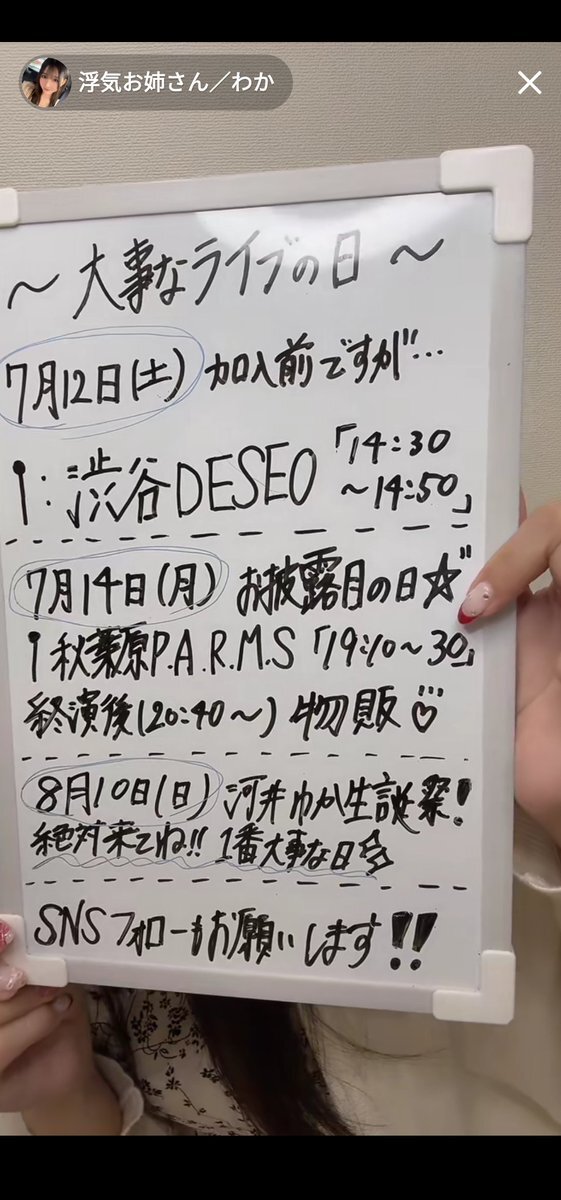 浮気お姉さん／わか
～ 大事なライブの日 ～
7月12日(土) 加入前ですが…
: 渋谷DESEO 「14:30
～14:50」
7月14日(月) お披露目の日☆
秋葉原P.A.R.M.S 「19:10～30」
終演後(20:40～) 物販♡
8月10日(日) 河井わか生誕祭!
絶対来てね!! 1番大事な日☆
SNSフォローもお願いします!!